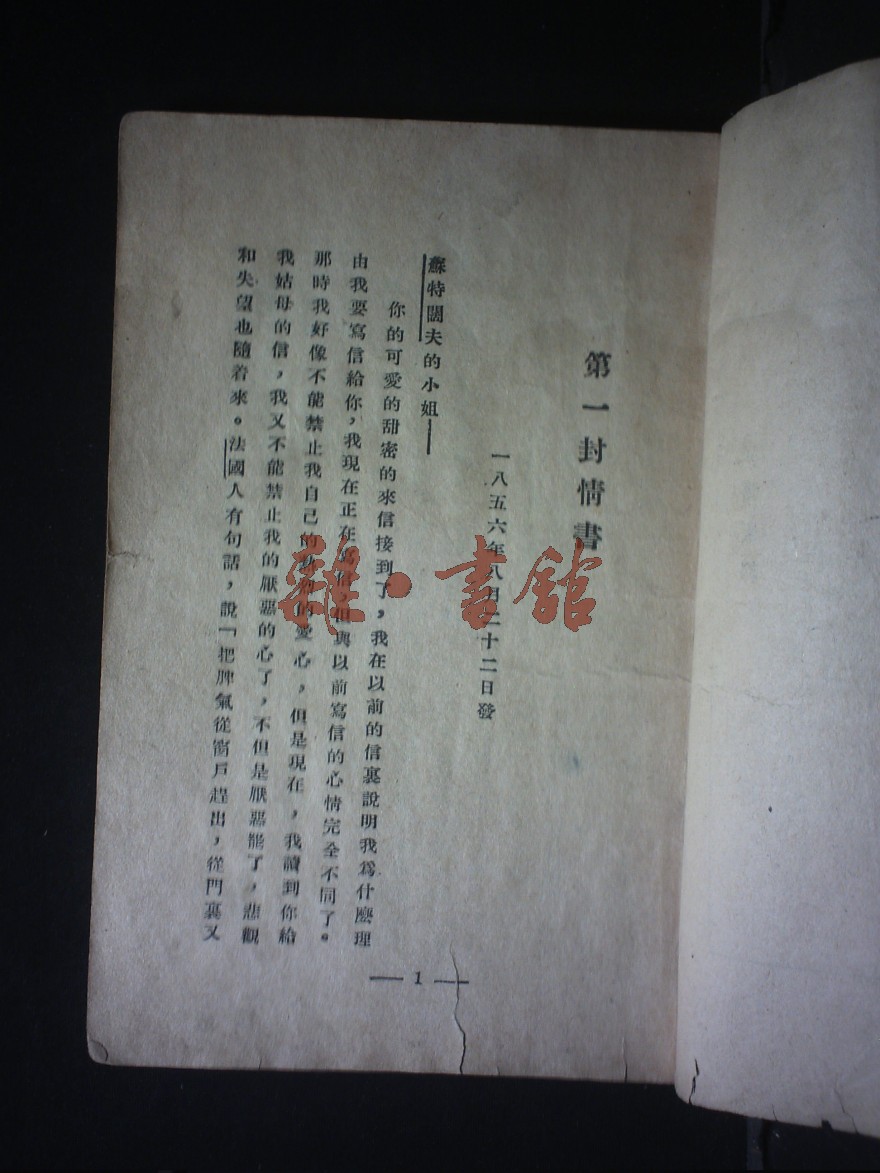 第一封情書
一八五六年八月二十二日發
蘇特闊夫的小姐——
你的可愛的甜密的來信接到了，我在以前的信裏說明我爲什麼理
由我要寫信給你，我現在正在寫信，但與以前寫信的心情完全不同了。
那時我好像不能禁止我自己的熱烈的愛心，但是現在，我讀到你給
我姑母的信，我又不能禁止我的厭惡的心了，不但是厭惡罷了，悲觀
和失望也隨着來。法國人有句話，說「把脾氣從窗戶趕出，從門裏又
— 1 —
雜·書館